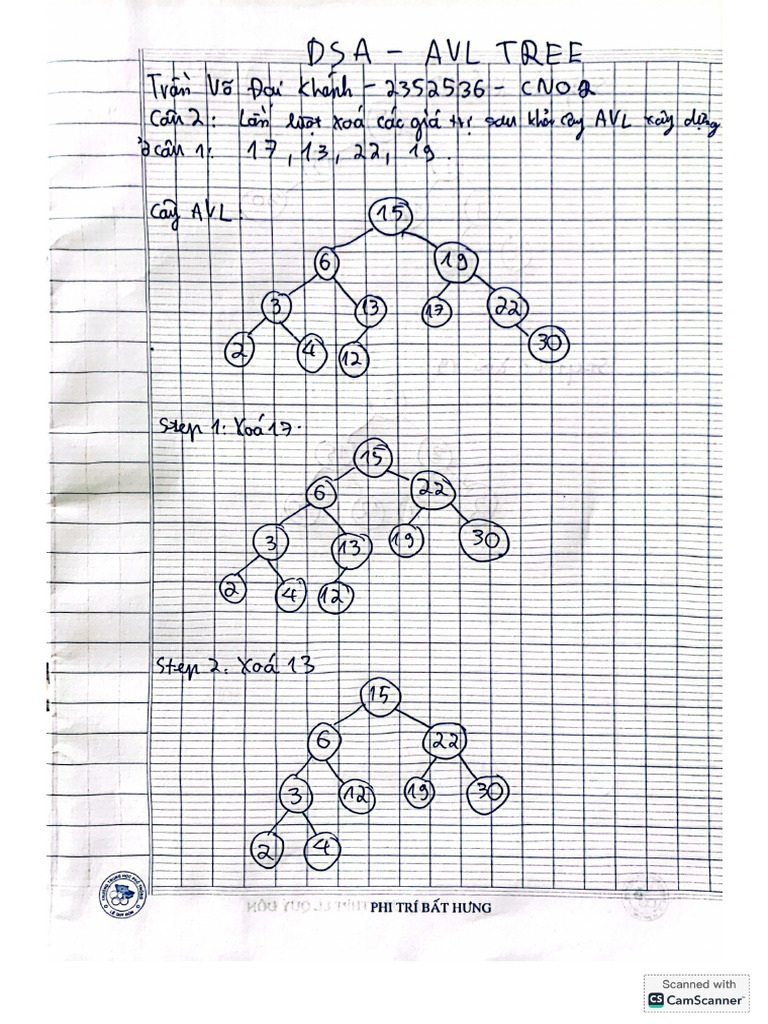 DSA - AVL TREE
Trần Võ Đại Khánh - 2352536 - CN02
Câu 2: Lần lượt xoá các giá trị sau khỏi cây AVL xây dựng
ở câu 1: 17, 13, 22, 19.
Cây AVL:
15
6 19
3 13 17 22
2 4 12 30
Step 1: Xoá 17.
15
6 22
3 13 19 30
2 4 12
Step 2: Xoá 13
15
6 22
3 12 19 30
2 4
TRƯỜNG TRUNG HỌC PHỔ THÔNG
LÊ QUÝ ĐÔN
PHI TRÍ BẤT HƯNG
Scanned with
CS CamScanner